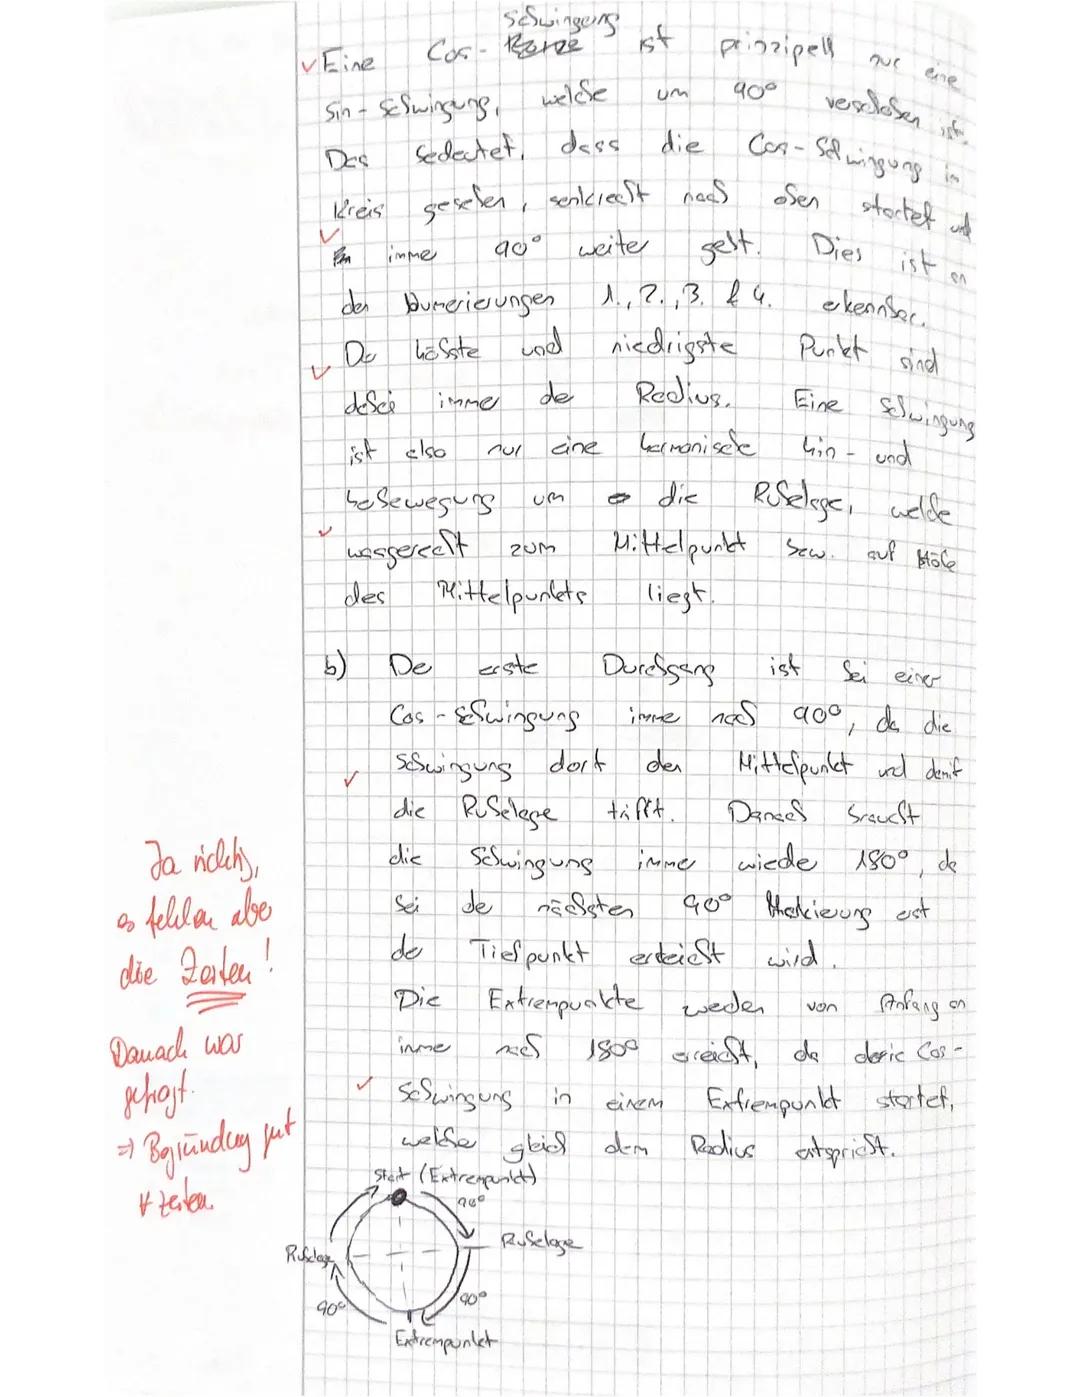 Schwingung
Eine Cos- ist prinzipell nur eine
Sin-Schwingung, welche um 90° verschoben ist.
Das bedeutet, dass die Cos-Schwingung im
Kreis gesehen, senkrecht nach oben startet und
imme 90° weiter geht. Dies ist an
den Numerierungen 1., 2., 3. & 4. erkennbar.
De höchste und niedrigste Punkt sind
dabei imme de Radius. Eine Schwingung
ist also nur eine harmonische hin- und
herbewegung um die Ruhelage, welche
waagerecht zum Mittelpunkt bzw. auf Höhe
des Mittelpunkts liegt.
b) De erste Durchgang ist bei einer
Cos-Schwingung imme nach 90°, da die
Schwingung dort den Mittelpunkt und damit
die Ruhelage trifft. Danach braucht
die Schwingung imme wiede 180°, da
bei de nächsten 90° Makierung erst
de Tiefpunkt erreicht wird.
Die Extrempunkte weden von Anfang an
imme nach 180° erreicht, da Cos-
Schwingung in einem Extrempunkt startet,
welche gleich dem Radius entspricht.
Ja richtig,
es fehlen aber
die Zeiten!
Danach war
gefragt.
⇒ Begründung gut
Zeiten.
Start (Extrempunkt)
90°
Ruhelage
Ruhelage
90°
90°
Extrempunkt